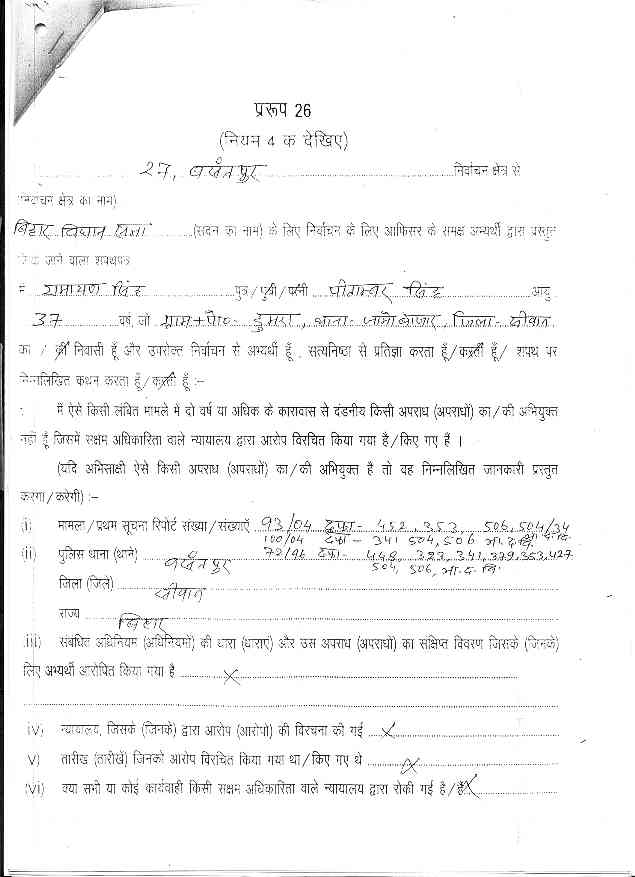 प्ररूप 26
(नियम 4 क देखिए)
27, बसंतपुर निर्वाचन क्षेत्र से
(निर्वाचन क्षेत्र का नाम)
बिहार विधान सभा (सदन का नाम) के लिए निर्वाचन के लिए आफिसर के समक्ष अभ्यर्थी द्वारा प्रस्तुत
किया जाने वाला शपथपत्र
मैं रामायण सिंह पुत्र/पुत्री/पत्नी पीताम्बर सिंह आयु
37 वर्ष, जो ग्राम+पो०- डुमरा, थाना- जामो बाजार, जिला- सीवान
का / की निवासी हूँ और उपरोक्त निर्वाचन से अभ्यर्थी हूँ, सत्यनिष्ठा से प्रतिज्ञा करता हूँ/करती हूँ/ शपथ पर
निम्नलिखित कथन करता हूँ/करती हूँ :-
मैं ऐसे किसी लंबित मामले में दो वर्ष या अधिक के कारावास से दंडनीय किसी अपराध (अपराधों) का/की अभियुक्त
नहीं हूँ जिसमें सक्षम अधिकारिता वाले न्यायालय द्वारा आरोप विरचित किया गया है/किए गए हैं ।
(यदि अभिसाक्षी ऐसे किसी अपराध (अपराधों) का/की अभियुक्त है तो वह निम्नलिखित जानकारी प्रस्तुत
करेगा/करेगी) :-
(i) मामला/प्रथम सूचना रिपोर्ट संख्या/संख्याएँ 93/04 दफा- 452, 353, 506, 504/34 भा.द.वि.
100/04 दफा - 341 504, 506 भा.द.वि.
(ii) पुलिस थाना (थाने) बसंतपुर 72/96 दफा- 448, 323, 341, 379, 353, 427
504, 506, भा.द.वि.
जिला (जिले) सीवान
राज्य बिहार
(iii) संबंधित अधिनियम (अधिनियमों) की धारा (धाराएं) और उस अपराध (अपराधों) का संक्षिप्त विवरण जिसके (जिनके)
लिए अभ्यर्थी आरोपित किया गया है X
(iv) न्यायालय, जिसके (जिनके) द्वारा आरोप (आरोपों) की विरचना की गई X
(v) तारीख (तारीखें) जिनको आरोप विरचित किया गया था/किए गए थे X
(vi) क्या सभी या कोई कार्यवाही किसी सक्षम अधिकारिता वाले न्यायालय द्वारा रोकी गई है/हैं X